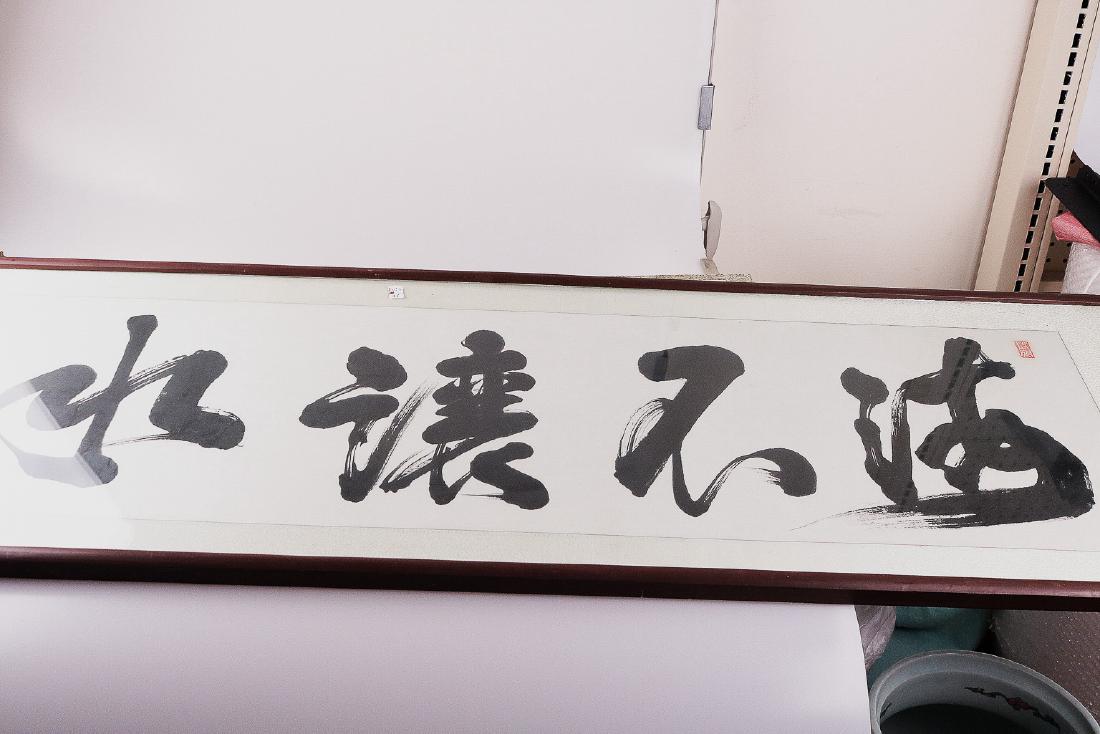 海不讓水